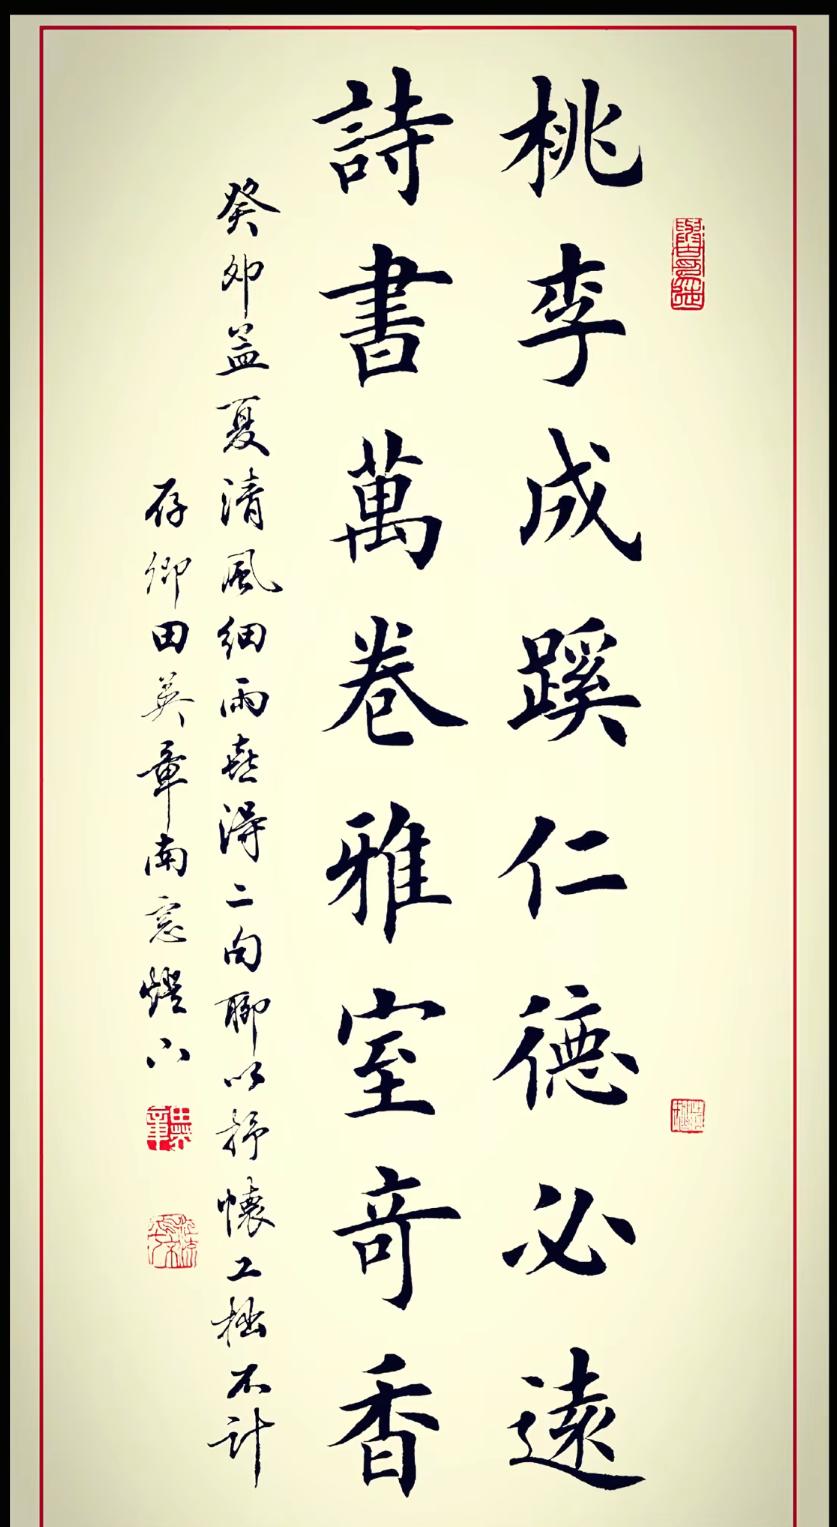 桃李成蹊仁德必遠
詩書萬卷雅室奇香
癸卯孟夏清風細雨喜得二句聊以抒懷工拙不計
存卿田英章南窓燈下